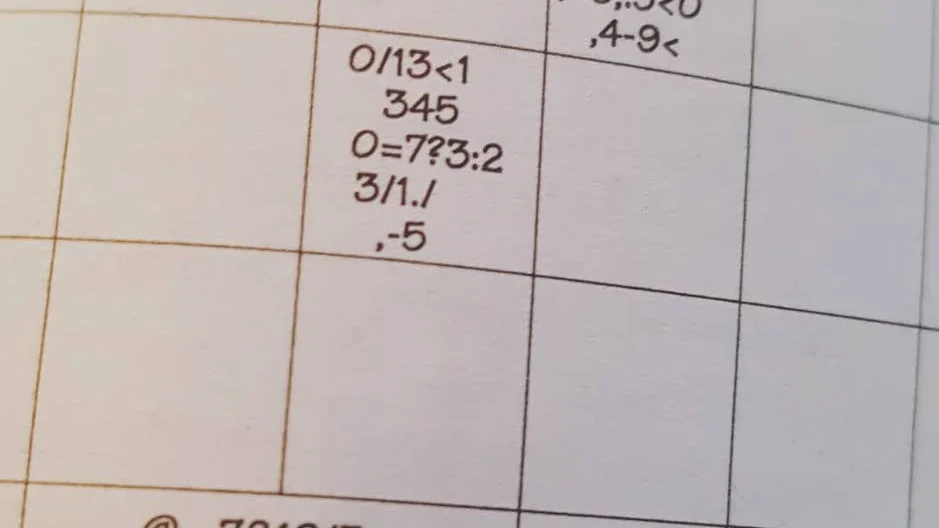 ,4-9<
0/13<1
345
0=7?3:2
3/1./
,-5